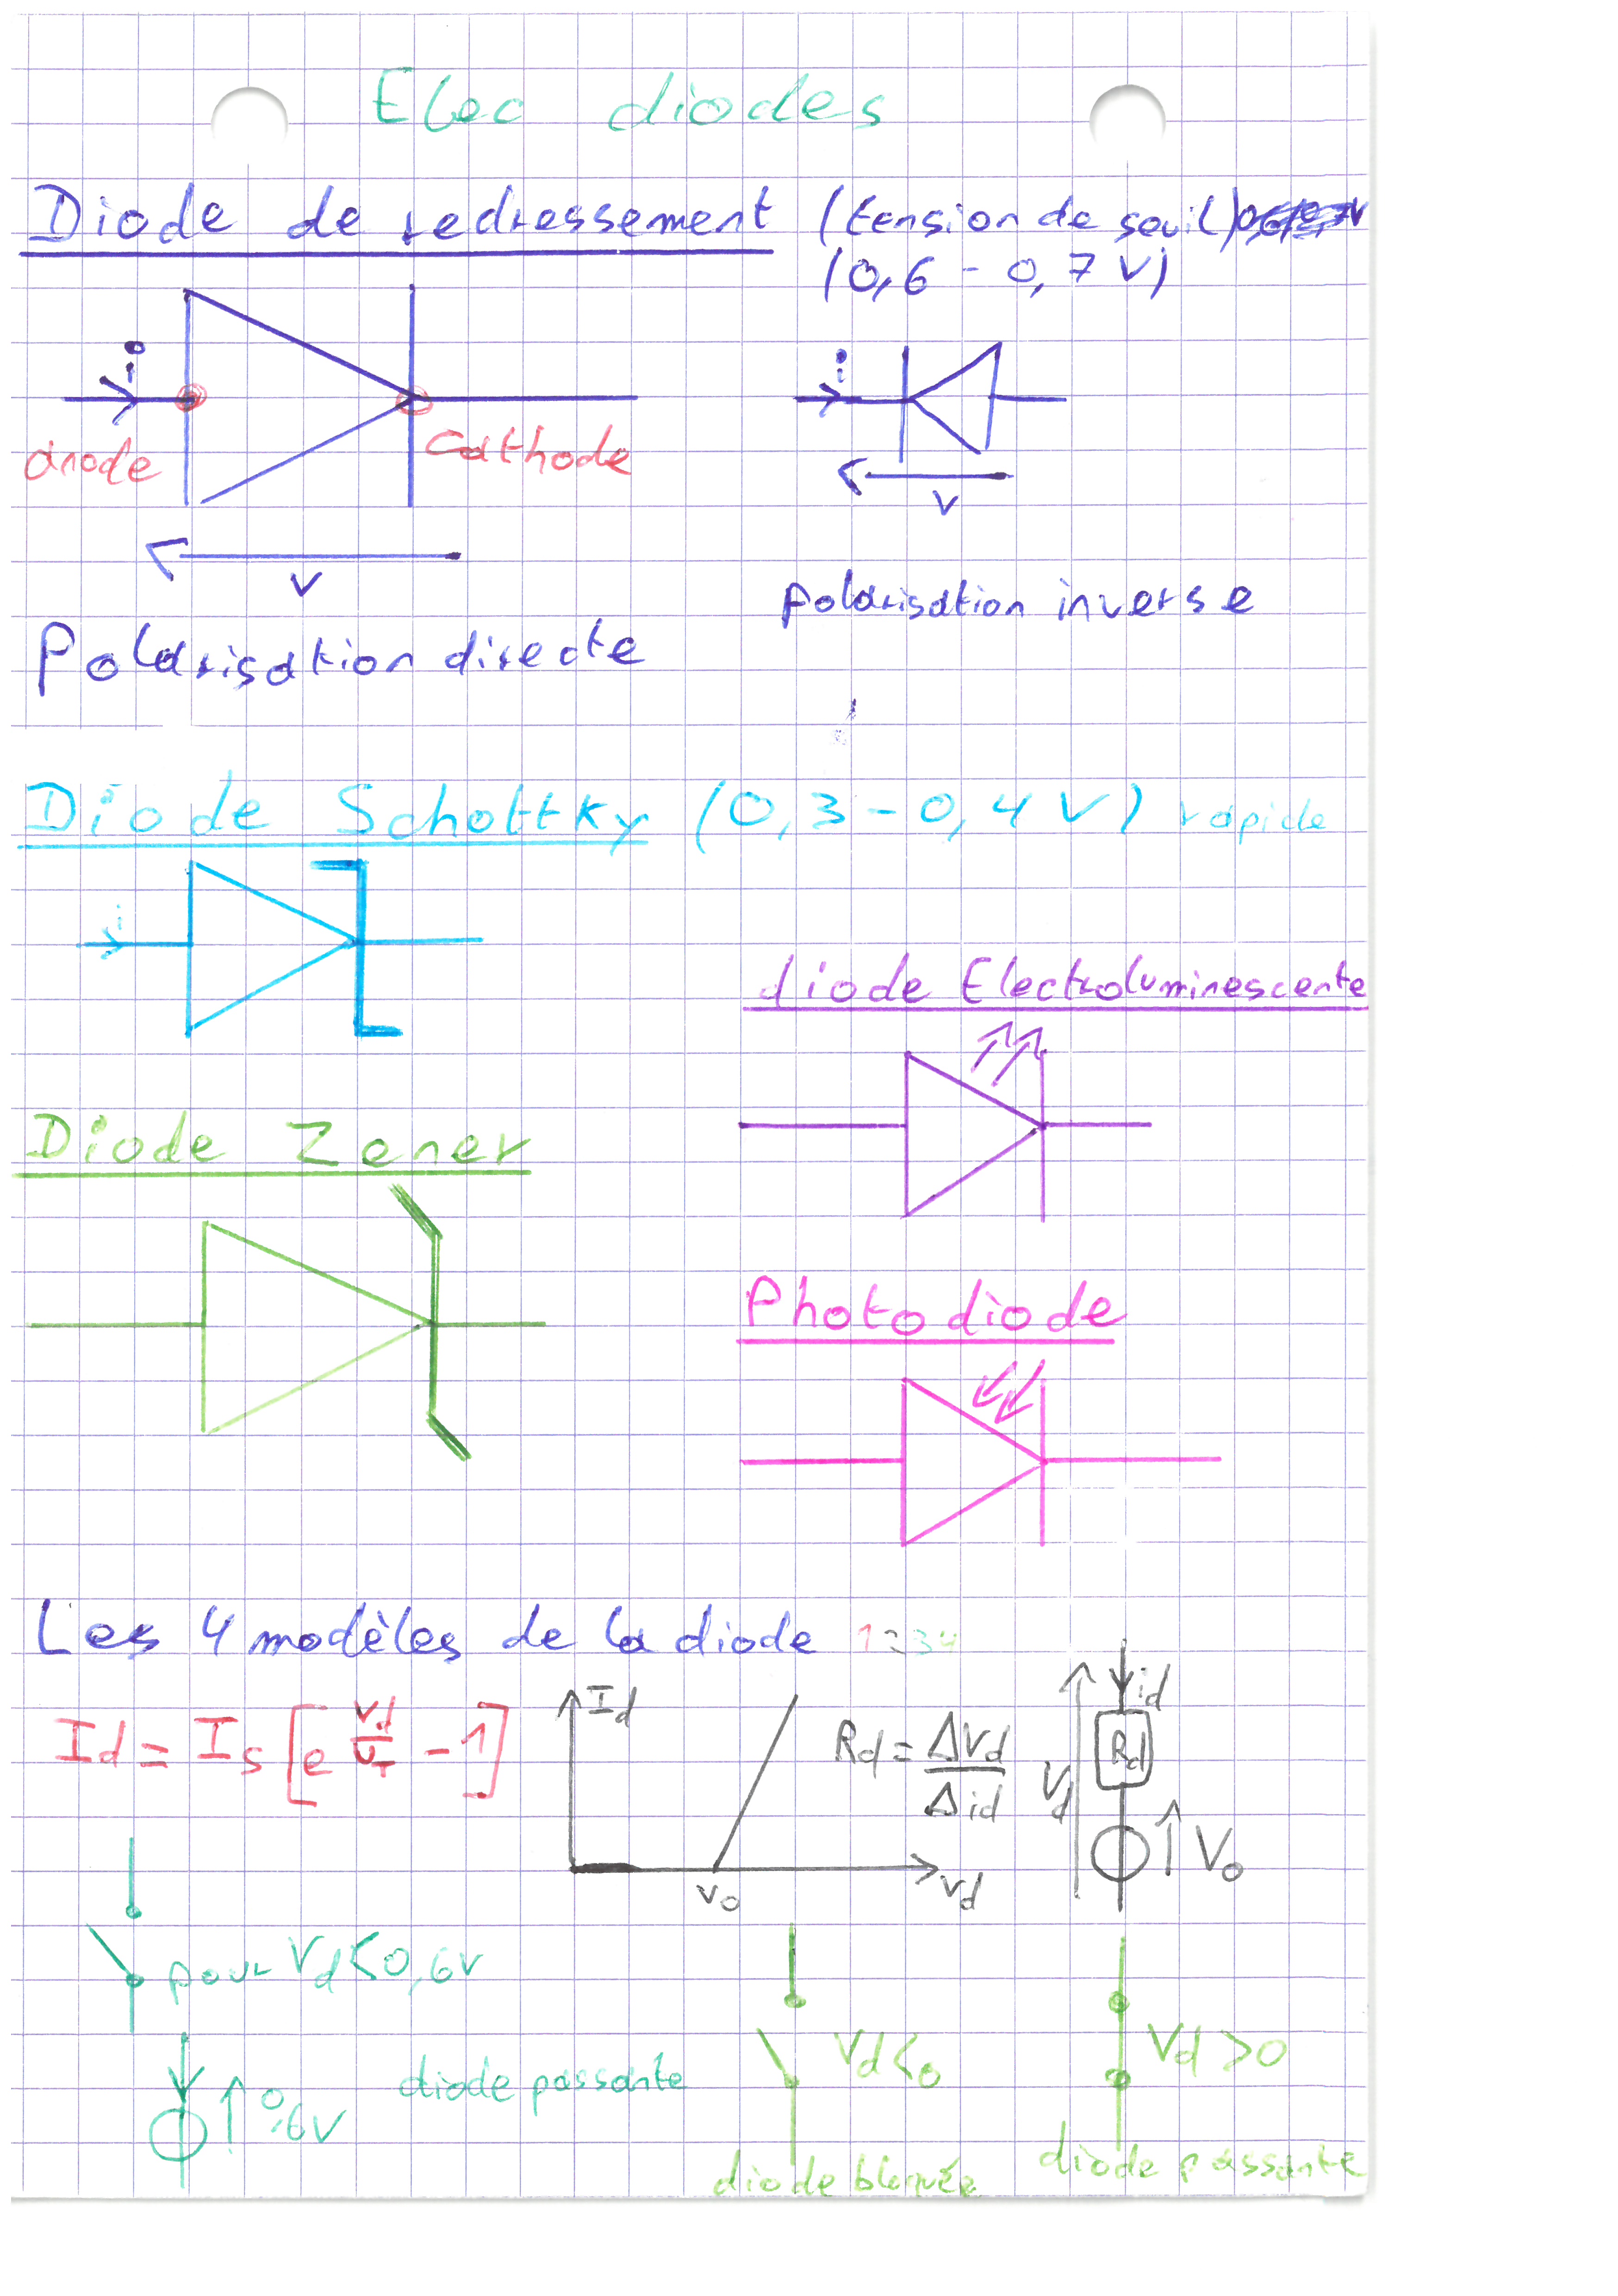 Elec diodes
Diode de redressement (tension de seuil)
(0,6 - 0,7 V)
i
i
anode
cathode
V
V
polarisation inverse
Polarisation directe
Diode Schottky (0,3 - 0,4 V) rapide
i
diode Electroluminescente
Diode Zener
Photodiode
Les 4 modèles de la diode 1234
Id = Is [e^(Vd/UT) - 1]
Id
Rd = ΔVd/Δid
id
Rd
Vd
V0
v0
vd
pour Vd<0,6v
Vd<0
Vd >0
0,6V
diode passante
diode bloquée
diode passante